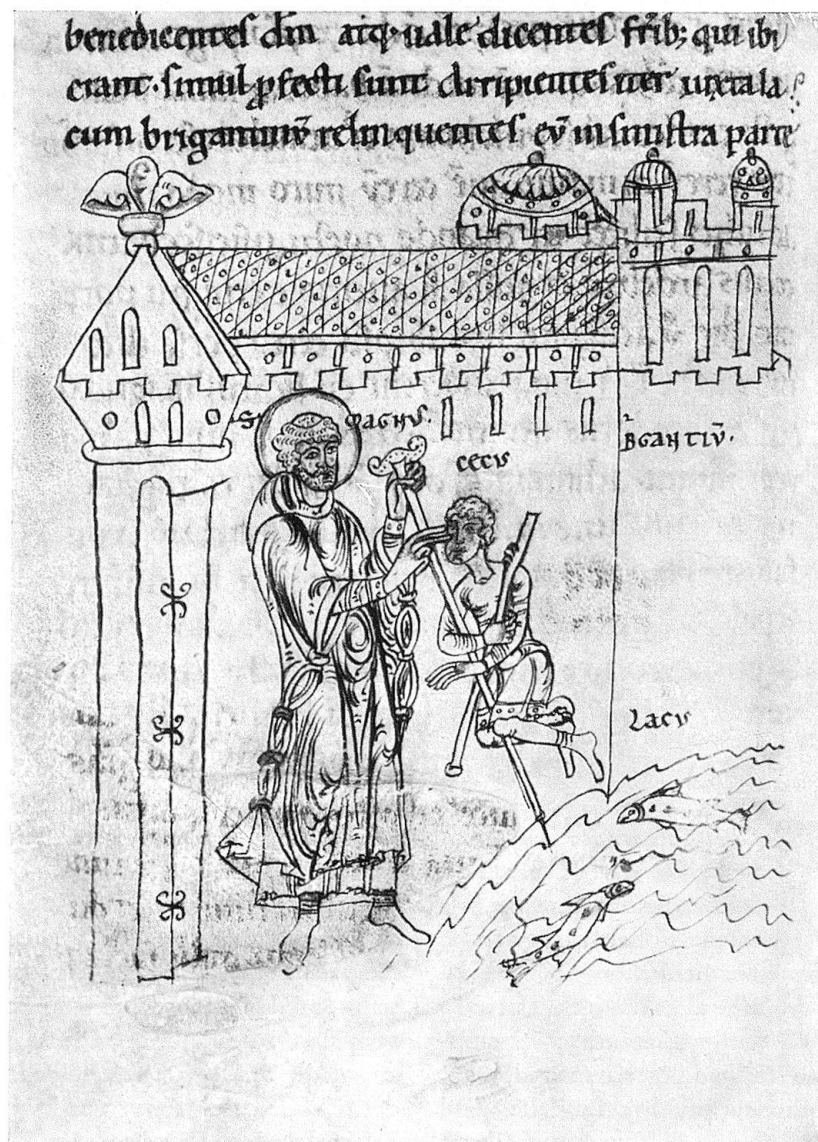 benedicentes dm̄ atq; uale dicentes fr̄ib; qui ibi
erant. simul ꝓfecti sunt arripientes iter iuxta la
cum brigantinū relinquentes eū in sinistra parte
S MAGNUS.
CECUS
BGANTIŪ.
LACU